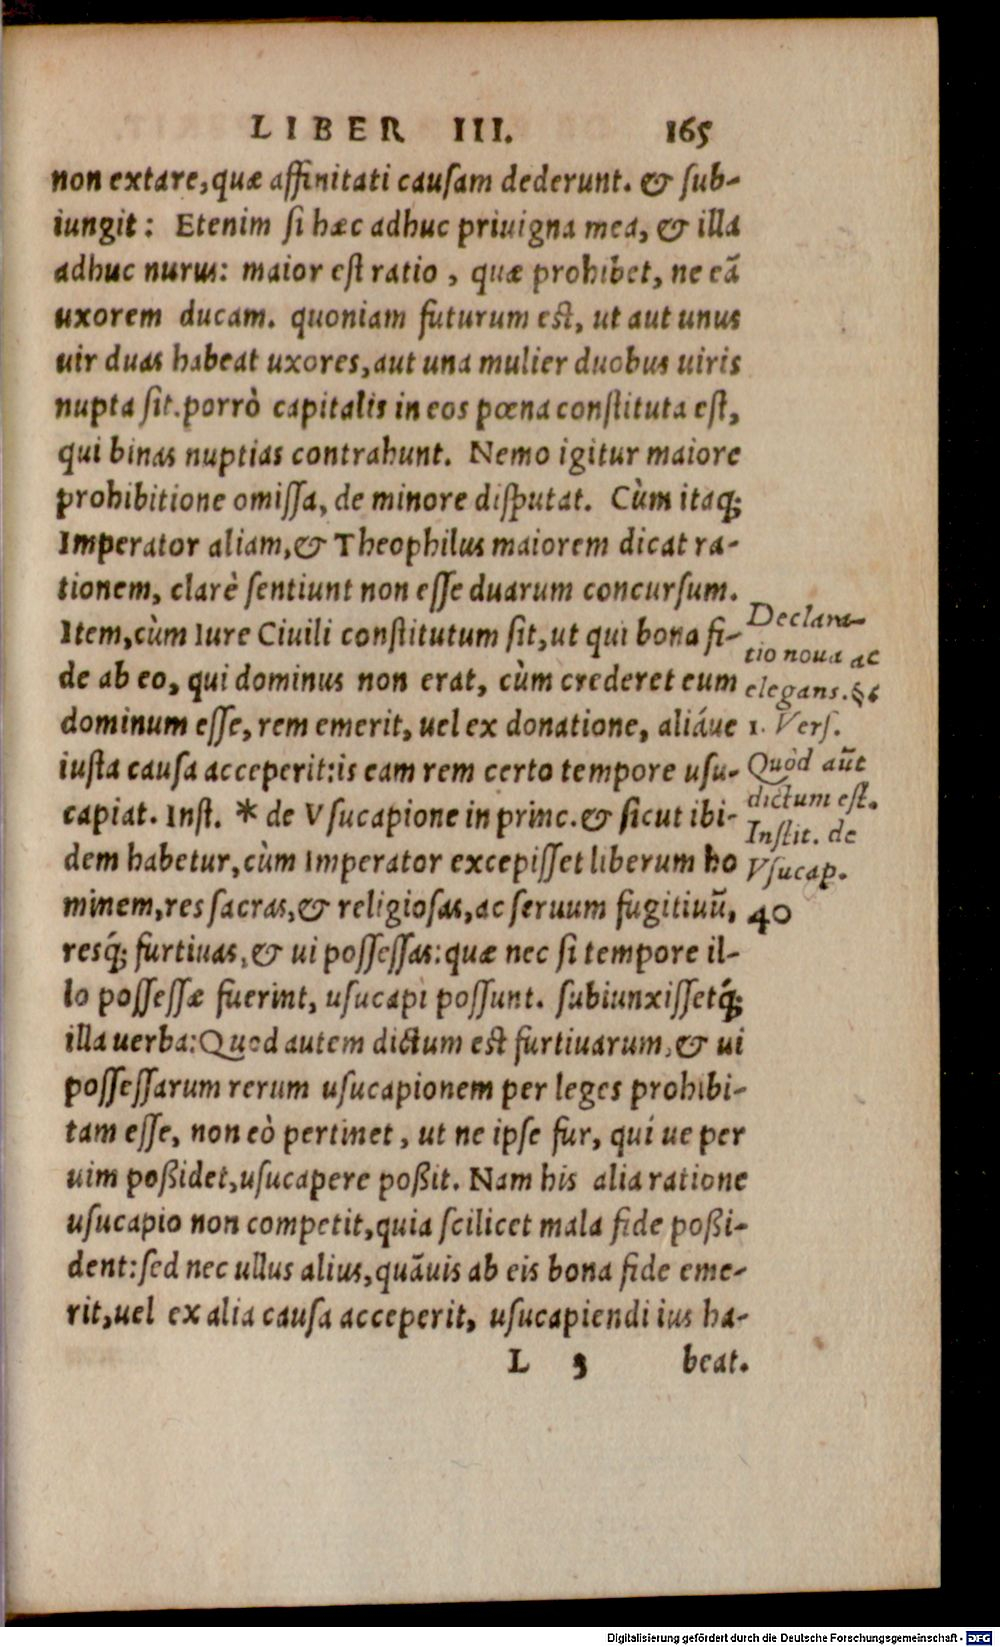 LIBER III. 165
non extare, quæ affinitati cauſam dederunt. & ſub-
iungit: Etenim ſi hæc adhuc priuigna mea, & illa
adhuc nurus: maior eſt ratio, quæ prohibet, ne eã
uxorem ducam. quoniam futurum eſt, ut aut unus
uir duas habeat uxores, aut una mulier duobus uiris
nupta ſit. porrò capitalis in eos pœna conſtituta eſt,
qui binas nuptias contrahunt. Nemo igitur maiore
prohibitione omiſſa, de minore diſputat. Cùm itaq;
Imperator aliam, & Theophilus maiorem dicat ra-
tionem, clarè ſentiunt non eſſe duarum concurſum.
Item, cùm Iure Ciuili conſtitutum ſit, ut qui bona fi-
de ab eo, qui dominus non erat, cùm crederet eum
dominum eſſe, rem emerit, uel ex donatione, aliáue
iuſta cauſa acceperit: is eam rem certo tempore uſu-
capiat. Inſt. * de Vſucapione in princ. & ſicut ibi-
dem habetur, cùm Imperator excepiſſet liberum ho
minem, res ſacras, & religioſas, ac ſeruum fugitiuũ,
resq́; furtiuas, & ui poſſeſſas: quæ nec ſi tempore il-
lo poſſeſſæ fuerint, uſucapi poſſunt. ſubiunxiſſetq́;
illa uerba: Quod autem dictum eſt furtiuarum, & ui
poſſeſſarum rerum uſucapionem per leges prohibi-
tam eſſe, non eò pertinet, ut ne ipſe fur, qui ue per
uim poßidet, uſucapere poßit. Nam his alia ratione
uſucapio non competit, quia ſcilicet mala fide poßi-
dent: ſed nec ullus alius, quãuis ab eis bona fide eme-
rit, uel ex alia cauſa acceperit, uſucapiendi ius ha-
L 3 beat.
Declara-
tio noua ac
elegans. §
1. Verſ.
Quòd aũt
dictum eſt.
Inſtit. de
Vſucap.
40
Digitalisierung gefördert durch die Deutsche Forschungsgemeinschaft - DFG